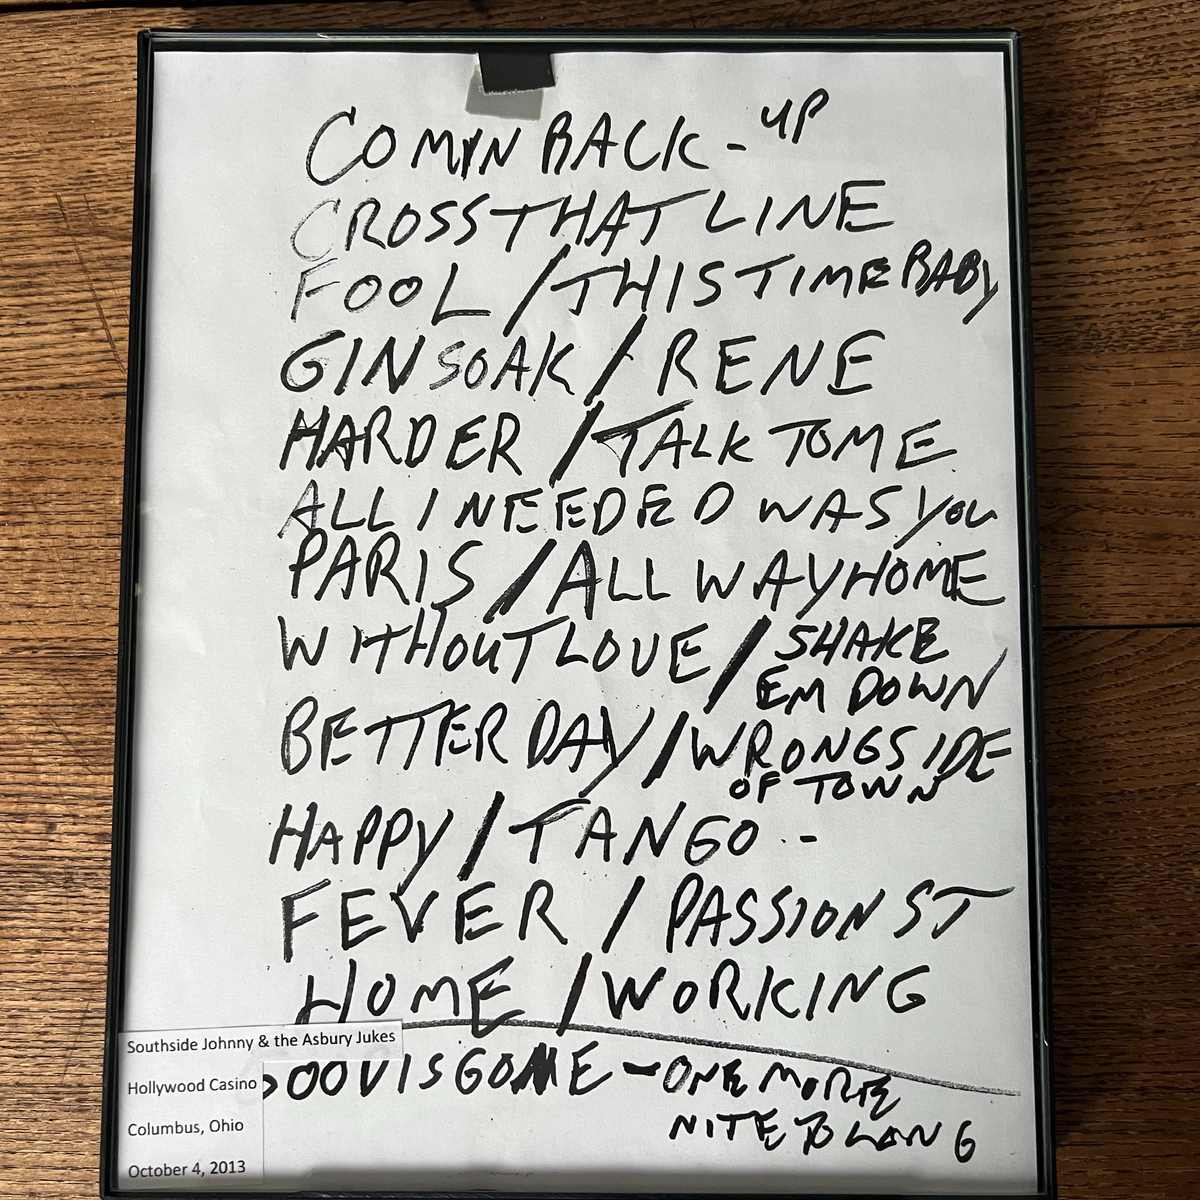 COMIN BACK - UP
CROSS THAT LINE
FOOL / THIS TIME BABY
GIN SOAK / RENE
HARDER / TALK TO ME
ALL I NEEDED WAS YOU
PARIS / ALL WAY HOME
WITHOUT LOVE / SHAKE
EM DOWN
BETTER DAY / WRONG SIDE
OF TOWN
HAPPY / TANGO --
FEVER / PASSION ST
HOME / WORKING
IS GONE - ONE MORE
NITE TO LONG
Southside Johnny & the Asbury Jukes
Hollywood Casino
Columbus, Ohio
October 4, 2013